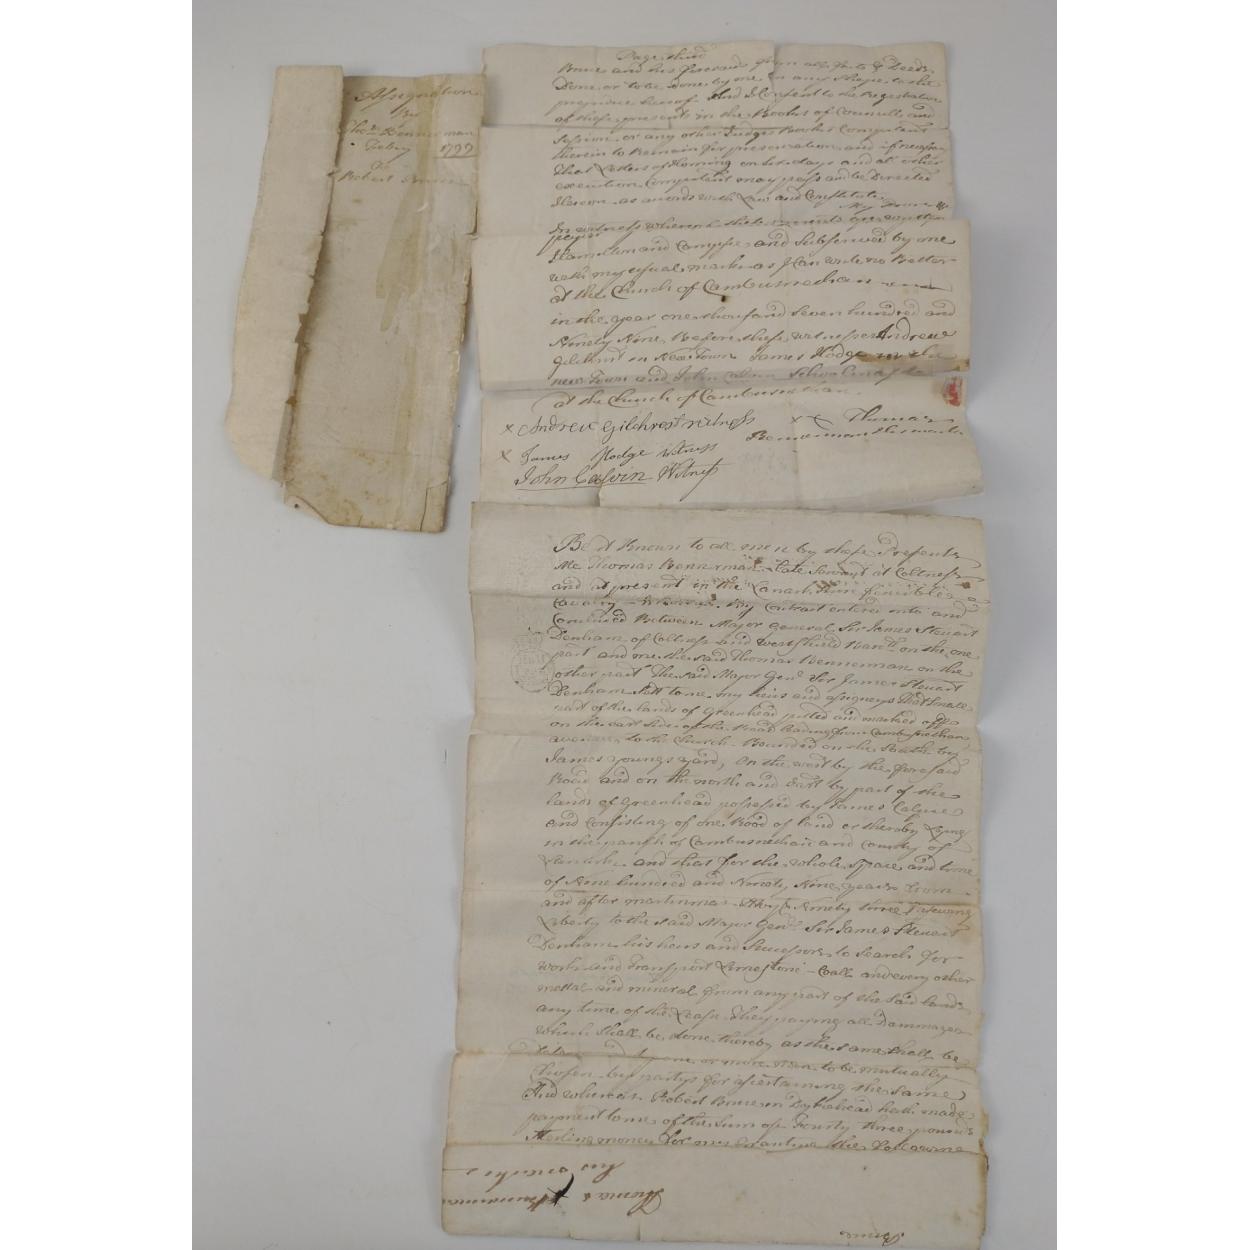 Assignation
By
Thos Bennerman
Feby 1799
To
Robert Bruce
Page third
Bruce and his foresaids from all facts & Deeds
Done or to be done by me in any shape to the
prejudice hereof And I Consent to the Registration
of these presents in the Books of Council and
Session or any other Judges Books Competent
therein to Remain for preservation and if necessary
that Letters of Horning on six days and all other
execution Competent may pass and be Directed
hereon as accords with Law and Constitute
My Pro
In witness whereof these presents are written
paper
Hamilton and Campsie and Subscrived by me
with my usual mark as I Can write no Better
at the Church of Cambusnethan
in the year one thousand seven hundred and
Ninety Nine Before these witnesses Andrew
Gilchrist in NewTown James Hodge in the
new Town and John Calvin Schoolmaster
at the Church of Cambusnethan
x Andrew Gilchrest witness
x x Thomas
Bennerman His mark
x James Hodge witness
John Calvin Witness
Be it Known to all men by these Presents
Me Thomas Bennerman Late Servant at Coltness
and at present in the Lanark Shire fencible
Cavalry Whereas By Contract entered into and
Concluded Between Major General Sir James Steuart
Denham of Coltness and Westshield Barott on the one
part and me the said Thomas Bennerman on the
other part The said Major Genl Sir James Steuart
Denham Sett to me my heirs and assigneys That small
part of the lands of Greenhead pitted and marked off
on the east side of the Road leading from Cambusnethan
avenue to the Church Bounded on the South by
James Youngs yard, On the west by the foresaid
Road and on the north and east by part of the
lands of Greenhead possessed by James
and Consisting of one Rood of land or thereby Lying
in the parish of Cambusnethan and County of
Lanark and that for the whole space and time
of Nine hundred and Ninety Nine years from
and after martinmas Ninety three Reserving
Liberty to the said Major Genl Sir James Steuart
Denham his heirs and Successors to Search for
work and Transport Limestone Coall and every other
mettal and mineral from any part of the said lands
any time of the Lease they paying all Dammages
which shall be done thereby as the same shall be
one or more men to be mutually
Chosen by partys for ascertaining the same
And whereas Robert Bruce in hath made
payment to me of the Sum of Fourty three pounds
Sterling money for my Granting the
Thomas
Bennerman
his mark
Bruce